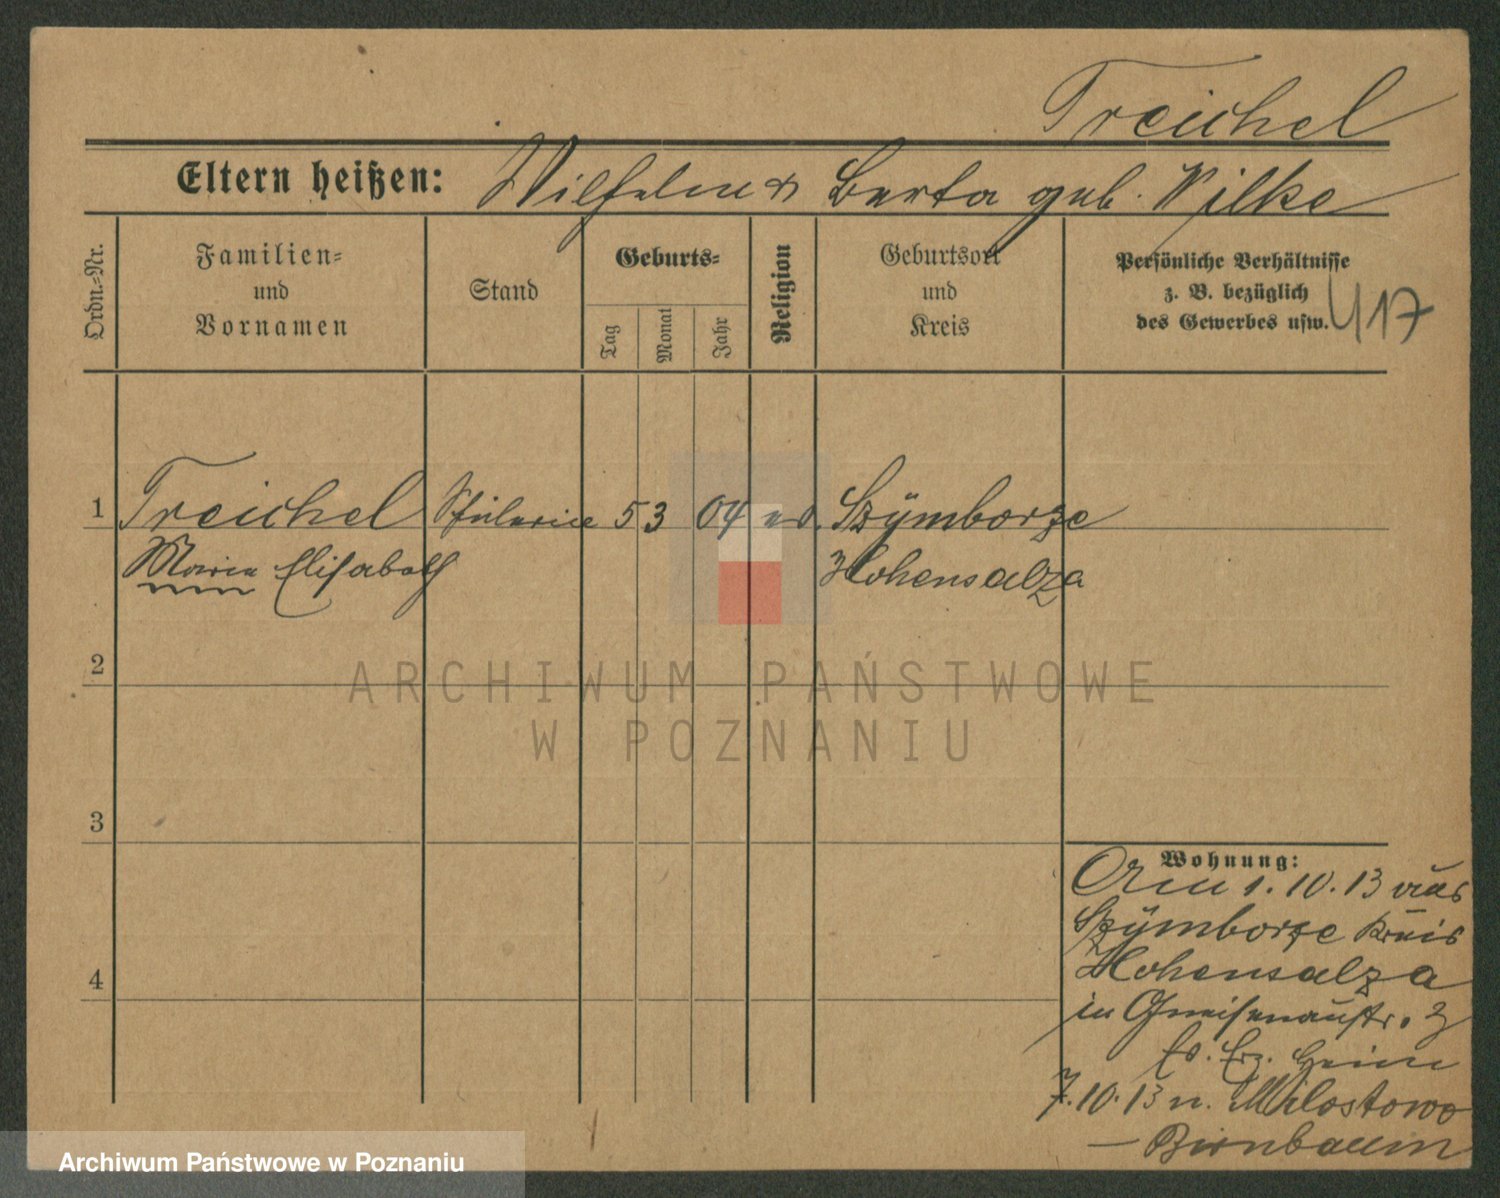 Treichel
Eltern heißen: Wilhelm u Berta geb. Wilke
Ordn.-Nr.
Familien- und Vornamen
Stand
Geburts-
Tag
Monat
Jahr
Religion
Geburtsort und Kreis
Persönliche Verhältnisse
z. B. bezüglich
des Gewerbes usw.
417
1 Treichel Schülerin 5 3 04 ev. Szÿmborze
Marie Elisabeth Hohensalza
2
3
4
Wohnung:
Am 1.10.13 aus
Szÿmborze Kreis
Hohensalza
in Gneisenaustr. 3
Ev. Erz. Heim
7.10.13 n. Milostowo
– Birnbaum
ARCHIWUM PAŃSTWOWE
W POZNANIU
Archiwum Państwowe w Poznaniu